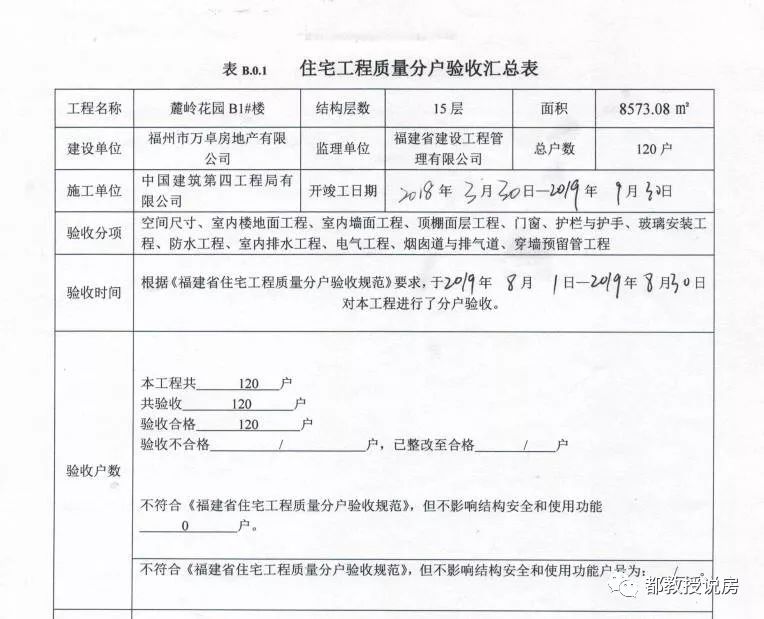 表 B.0.1 住宅工程质量分户验收汇总表
工程名称 麓岭花园 B1#楼 结构层数 15 层 面积 8573.08 ㎡
建设单位 福州市万卓房地产有限公司 监理单位 福建省建设工程管理有限公司 总户数 120 户
施工单位 中国建筑第四工程局有限公司 开竣工日期 2018 年 3 月 30 日—2019 年 9 月 30 日
验收分项 空间尺寸、室内楼地面工程、室内墙面工程、顶棚面层工程、门窗、护栏与护手、玻璃安装工
程、防水工程、室内排水工程、电气工程、烟囱道与排气道、穿墙预留管工程
验收时间 根据《福建省住宅工程质量分户验收规范》要求，于2019年 8 月 1 日—2019年 8 月30日
对本工程进行了分户验收。
验收户数
本工程共 120 户
共验收 120 户
验收合格 120 户
验收不合格 / 户，已整改至合格 / 户
不符合《福建省住宅工程质量分户验收规范》，但不影响结构安全和使用功能
0 户。
不符合《福建省住宅工程质量分户验收规范》，但不影响结构安全和使用功能户号为： / 。
都教授说房